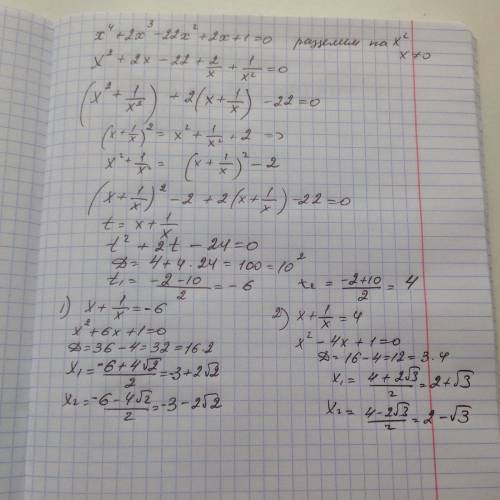 x⁴+2x³-22x²+2x+1=0 разделим на x²
x≠0
x²+2x-22+2/x+1/x²=0
(x²+1/x²)+2(x+1/x)-22=0
(x+1/x)²=x²+1/x²+2 =>
x²+1/x²=(x+1/x)²-2
(x+1/x)²-2+2(x+1/x)-22=0
t=x+1/x
t²+2t-24=0
D=4+4·24=100=10²
t₁=(-2-10)/2=-6 x₂=(-2+10)/2=4
1) x+1/x=-6
x²+6x+1=0
D=36-4=32=16·2
x₁=(-6+4√2)/2=-3+2√2
x₂=(-6-4√2)/2=-3-2√2
2) x+1/x=4
x²-4x+1=0
D=16-4=12=3·4
x₁=(4+2√3)/2=2+√3
x₂=(4-2√3)/2=2-√3